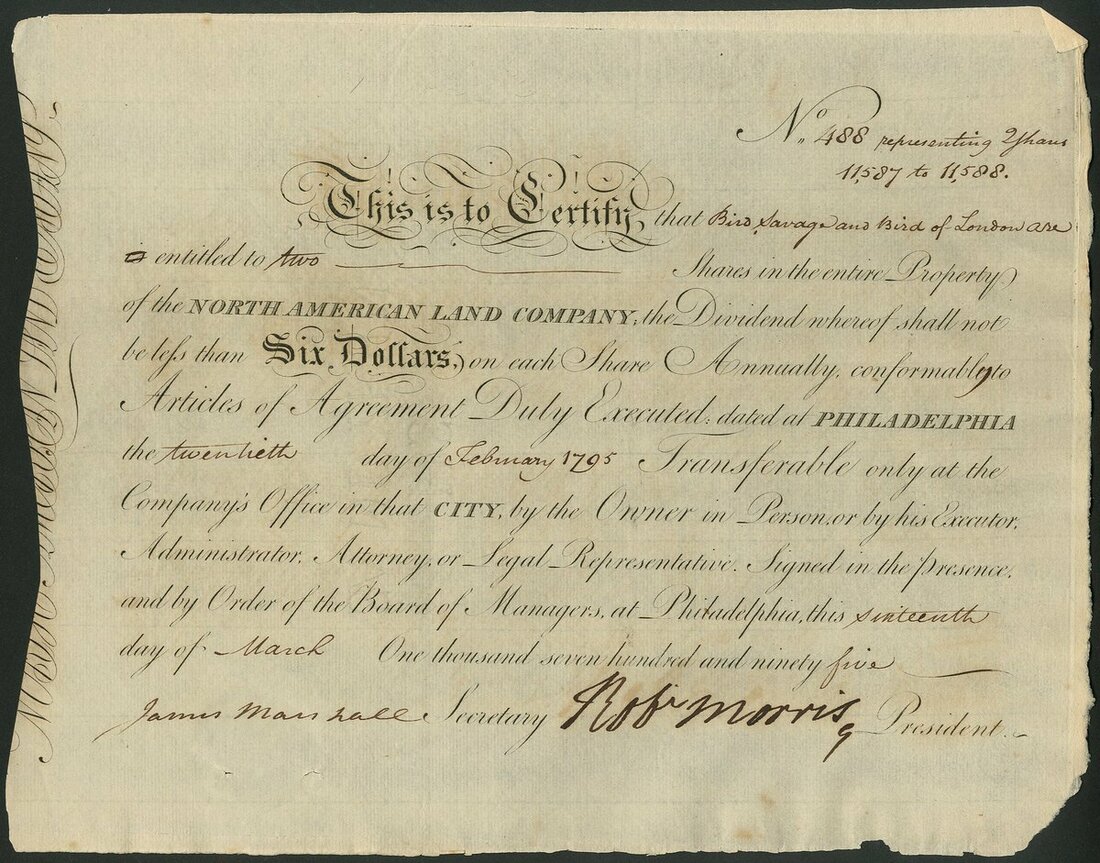 No. 488 representing 2 Shares
11,587 to 11,588.
This is to Certify, that Bird, Savage and Bird of London are
is entitled to two Shares in the entire Property
of the NORTH AMERICAN LAND COMPANY; the Dividend whereof shall not
be less than Six Dollars, on each Share Annually, conformably to
Articles of Agreement Duly Executed: dated at PHILADELPHIA
the twentieth day of February 1795 Transferable only at the
Company's Office in that CITY, by the Owner in Person, or by his Executor,
Administrator, Attorney, or Legal Representative. Signed in the presence,
and by Order of the Board of Managers, at Philadelphia, this sixteenth
day of March One thousand seven hundred and ninety five
James Marshall Secretary Robt Morris President.